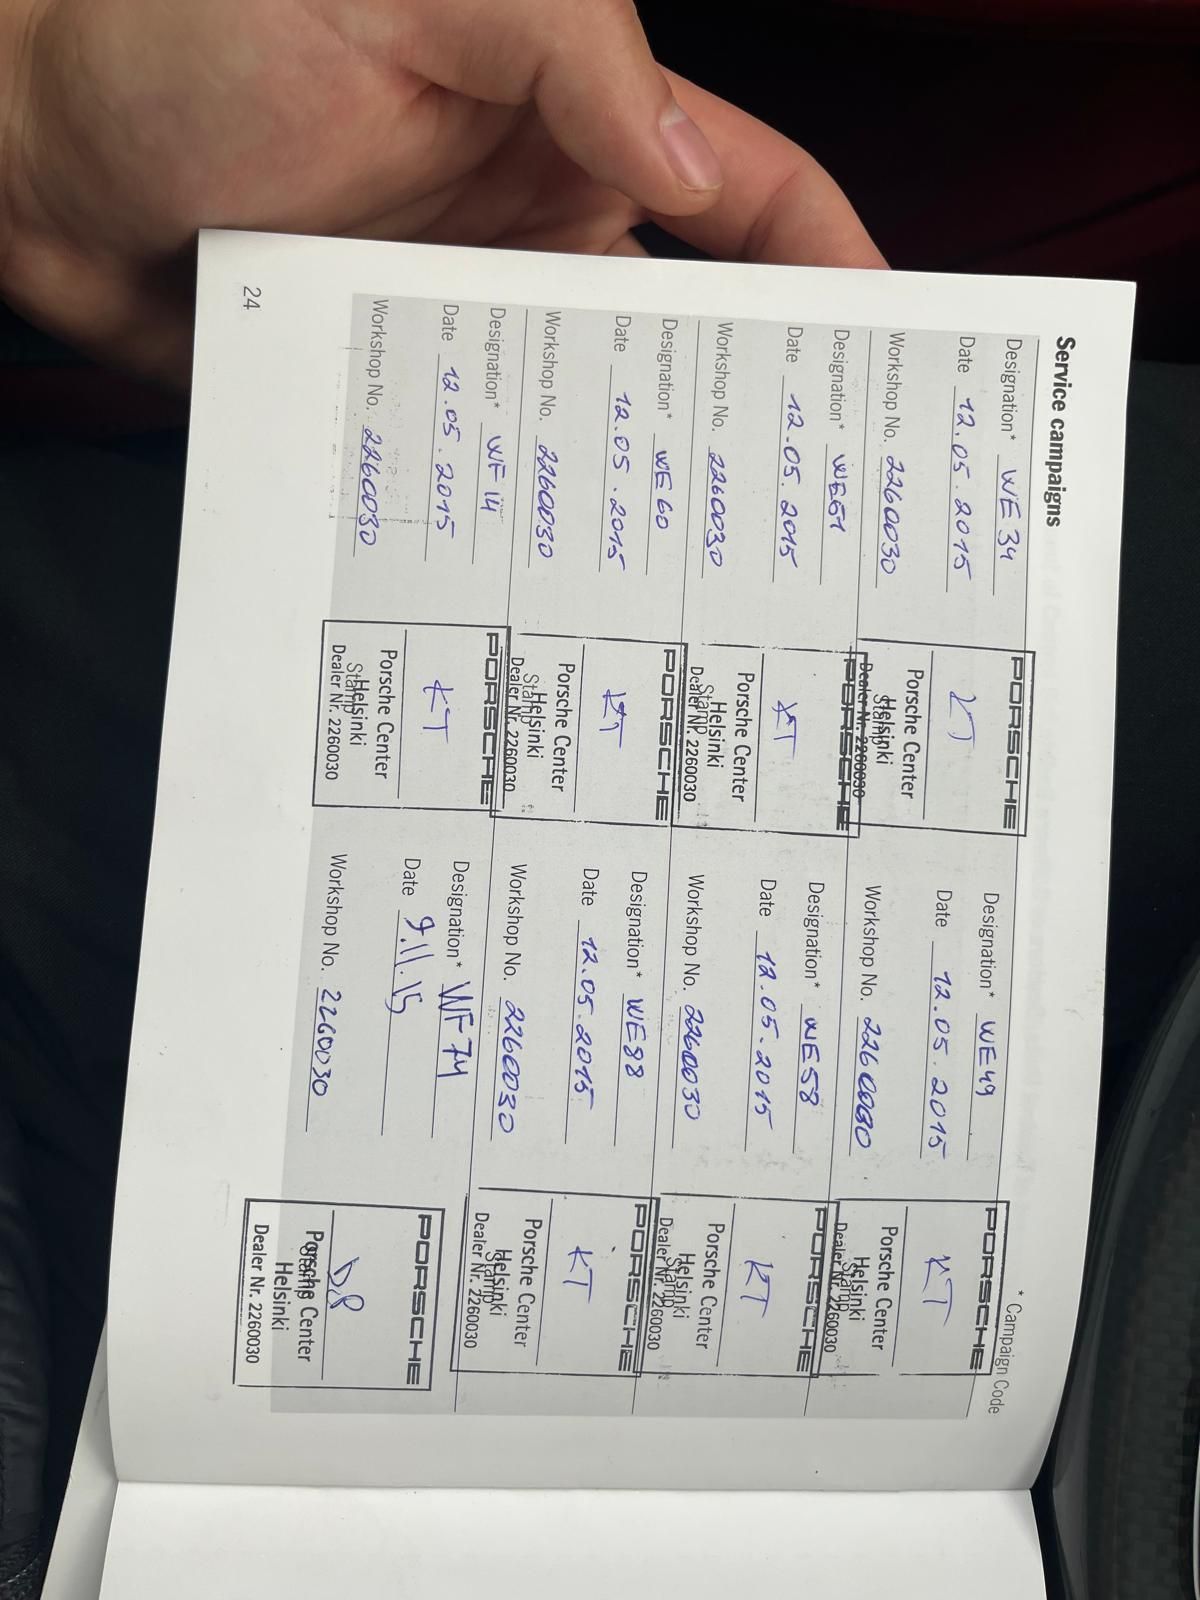 Service campaigns
* Campaign Code
Designation* WE 34
Date 12.05.2015
Workshop No. 2260030
PORSCHE
KT
Porsche Center
Helsinki
Stamp
Dealer Nr. 2260030
Designation* WE49
Date 12.05.2015
Workshop No. 2260030
PORSCHE
KT
Porsche Center
Helsinki
Stamp
Dealer Nr. 2260030
Designation* WE51
Date 12.05.2015
Workshop No. 2260030
PORSCHE
KT
Porsche Center
Helsinki
Stamp
Dealer Nr. 2260030
Designation* WE58
Date 12.05.2015
Workshop No. 2260030
PORSCHE
KT
Porsche Center
Helsinki
Stamp
Dealer Nr. 2260030
Designation* WE60
Date 12.05.2015
Workshop No. 2260030
PORSCHE
KT
Porsche Center
Helsinki
Stamp
Dealer Nr. 2260030
Designation* WE88
Date 12.05.2015
Workshop No. 2260030
PORSCHE
KT
Porsche Center
Helsinki
Stamp
Dealer Nr. 2260030
Designation* WF14
Date 12.05.2015
Workshop No. 2260030
PORSCHE
KT
Porsche Center
Helsinki
Stamp
Dealer Nr. 2260030
Designation* WF74
Date 9.11.15
Workshop No. 2260030
PORSCHE
Porsche Center
Stamp
Helsinki
Dealer Nr. 2260030
24